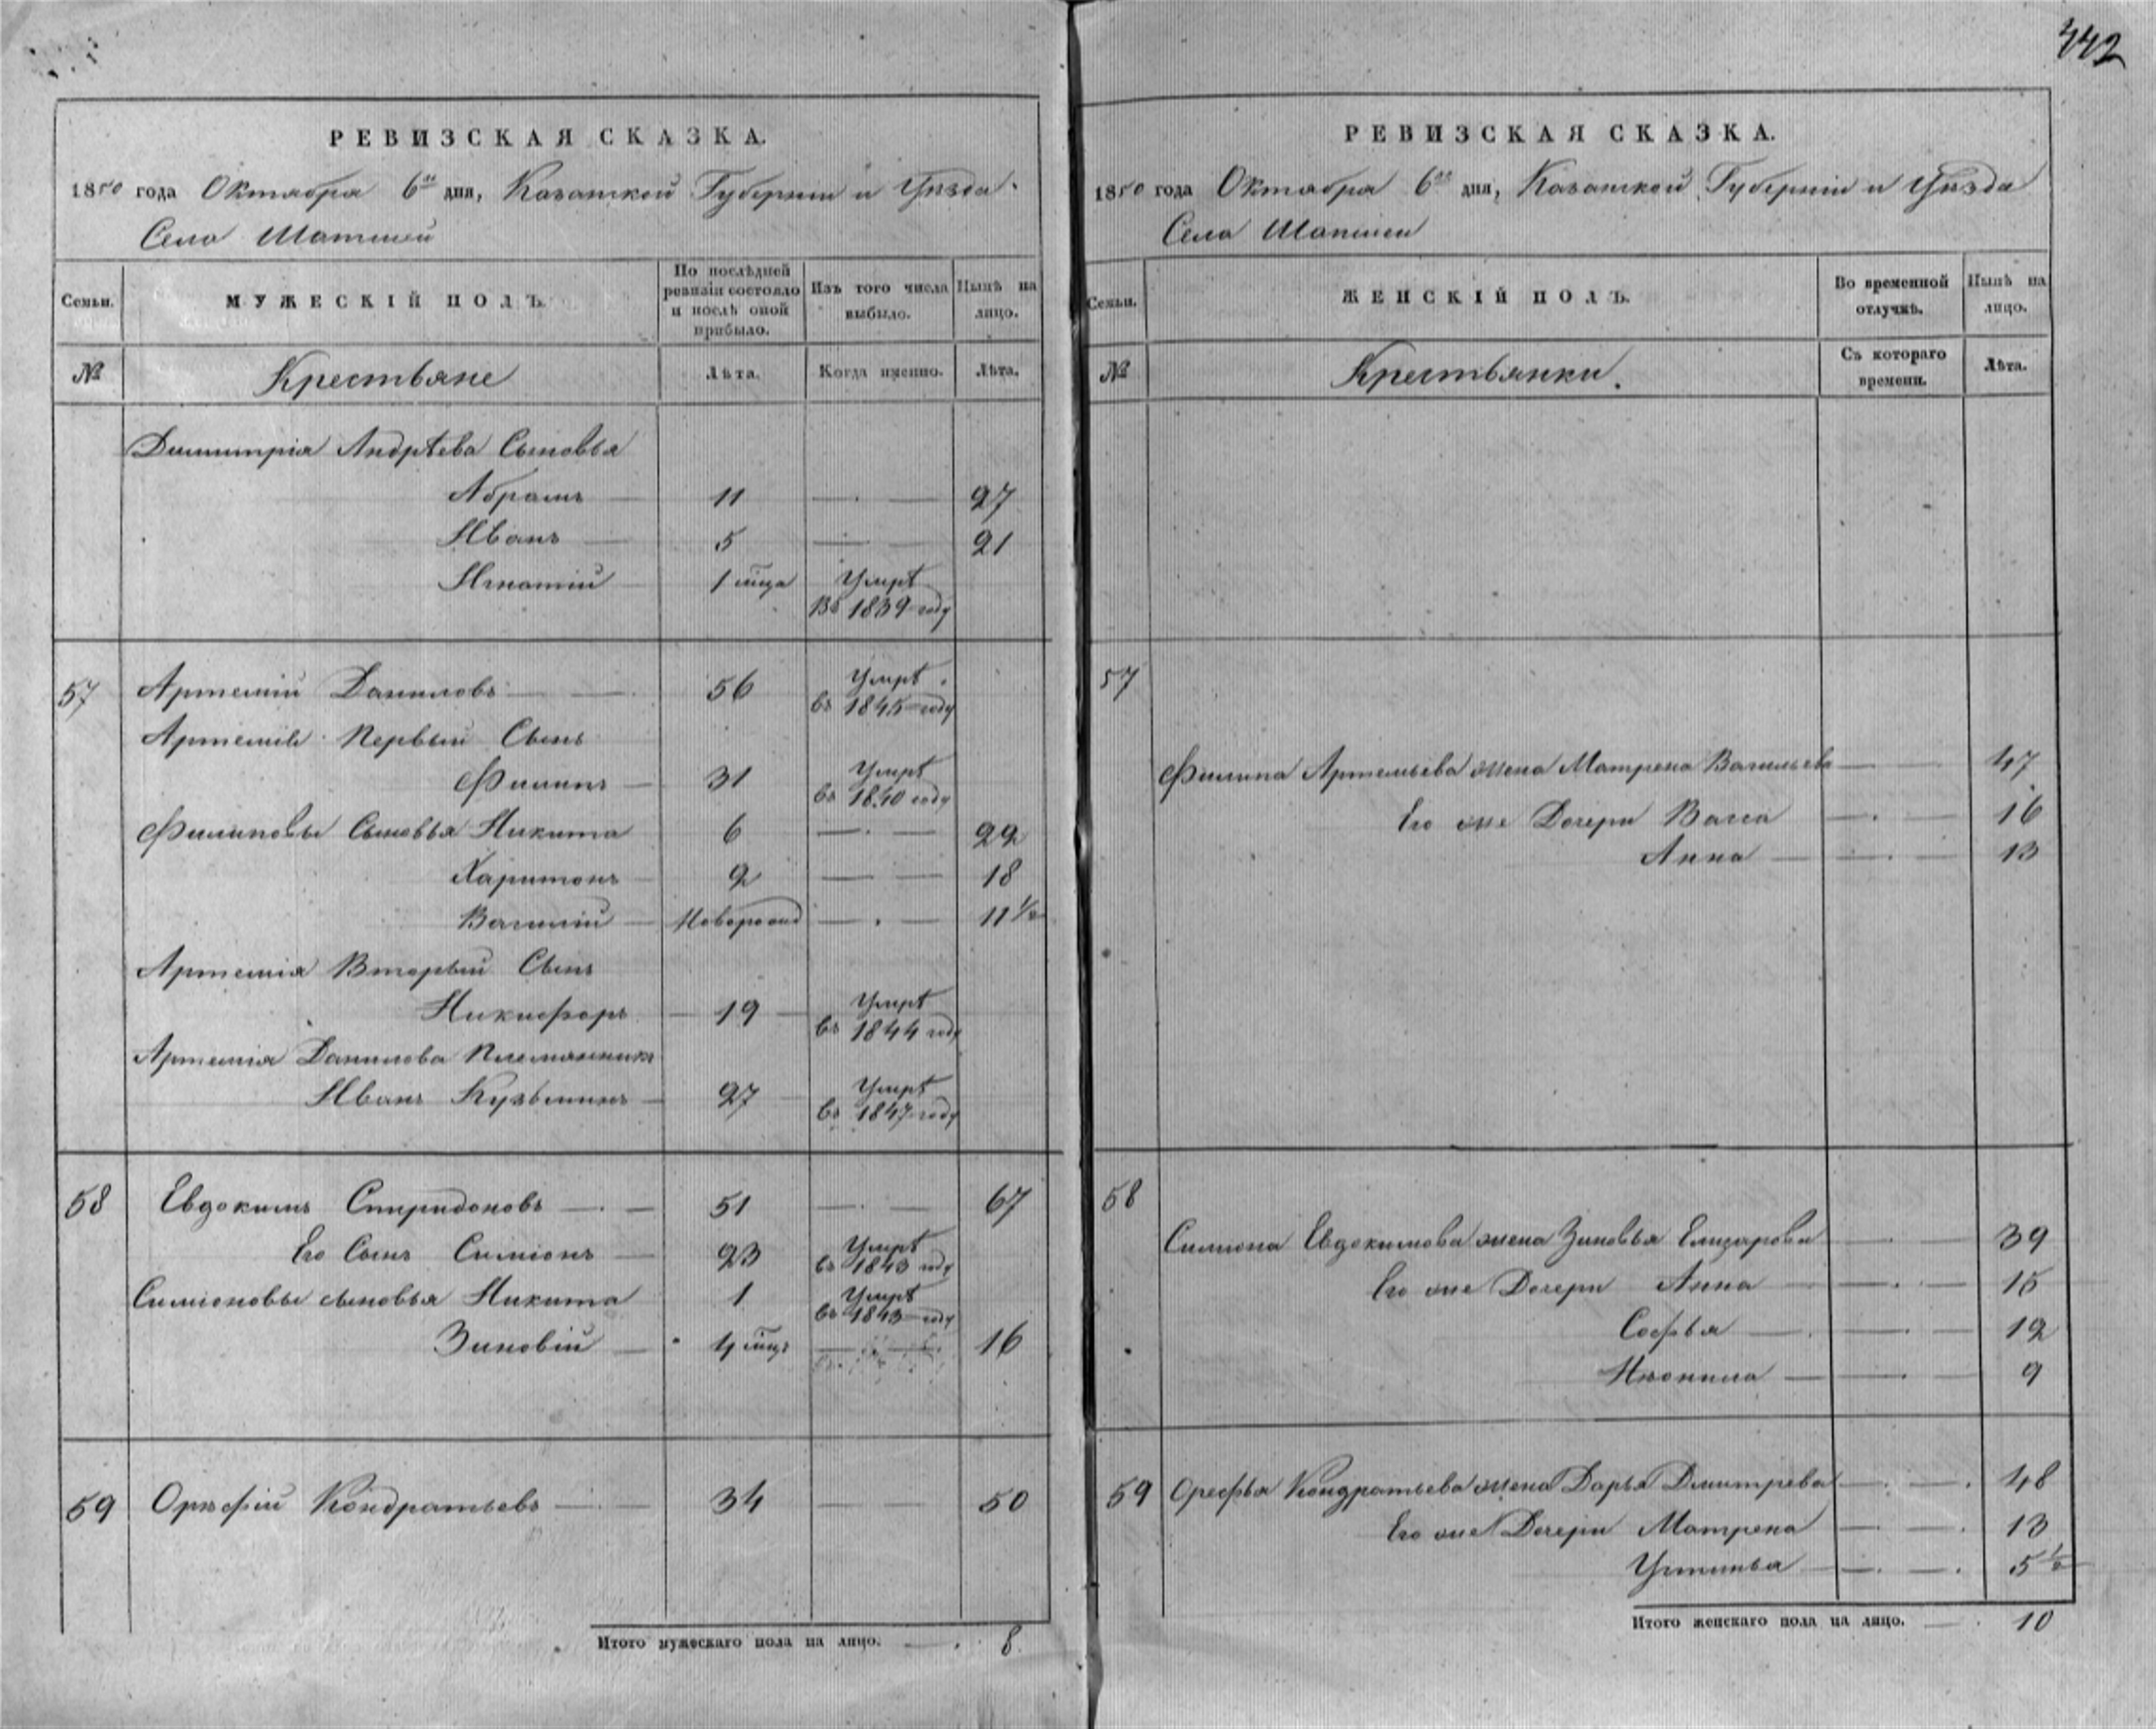 442
РЕВИЗСКАЯ СКАЗКА.
1850 года Октября 6го дня, Казанской Губернии и Уѣзда
Села Шапшей
Семьи. МУЖЕСКІЙ ПОЛЪ. По послѣдней ревизіи состояло и послѣ оной прибыло. Изъ того числа выбыло. Нынѣ на лицо.
№ Крестьяне Лѣта. Когда именно. Лѣта.
Димитрія Андрѣева Сыновья
Абрамъ 11 — 27
Иванъ 5 — 21
Игнатій 1 мца Умрѣ въ 1839 году
57 Артемій Даниловъ 56 Умрѣ въ 1845 году
Артемія Первый Сынъ
Филипъ 31 Умрѣ въ 1840 году
Филиповы Сыновья Никита 6 — 22
Харитонъ 2 — 18
Василій Новорожд — 11 1/2
Артемія Вторый Сынъ
Никифоръ 19 Умрѣ въ 1844 году
Артемія Данилова Племянникъ
Иванъ Кузьминъ 27 Умрѣ въ 1847 году
58 Евдокимъ Спиридоновъ 51 — 67
Его Сынъ Симіонъ 23 Умрѣ въ 1843 году
Симіоновы сыновья Никита 1 Умрѣ въ 1843 году
Зиновій 4 мцъ — 16
59 Орефій Кондратьевъ 34 — 50
Итого мужескаго пола на лицо. 8
РЕВИЗСКАЯ СКАЗКА.
1850 года Октября 6го дня, Казанской Губерніи и Уѣзда
Села Шапшеи
Семьи. ЖЕНСКІЙ ПОЛЪ. Во временной отлучкѣ. Нынѣ на лицо.
№ Крестьянки. Съ котораго времени. Лѣта.
57
Филипа Артемьева жена Матрена Васильева — 47
Его же Дочери Васса — 16
Анна — 13
58
Симіона Евдокимова жена Зиновья Елизарова — 39
Его же Дочери Анна — 15
Софья — 12
Неонила — 9
59 Орефья Кондратьева жена Дарья Дмитрева — 48
Его же Дочери Матрена — 13
Устинья — 5 1/2
Итого женскаго пола на лицо. 10